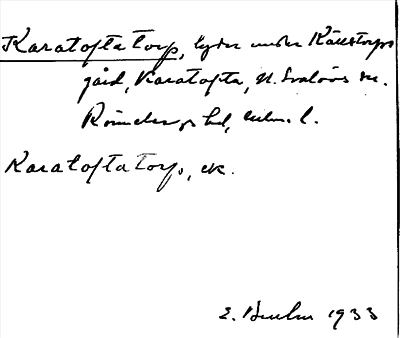 Karatofta torp, lyder under Källstorps
gård, Karatofta, N. Svalövs sn.
Rönneb. hd, Malm. l.
Karatofta torp, ek.
E. 1933